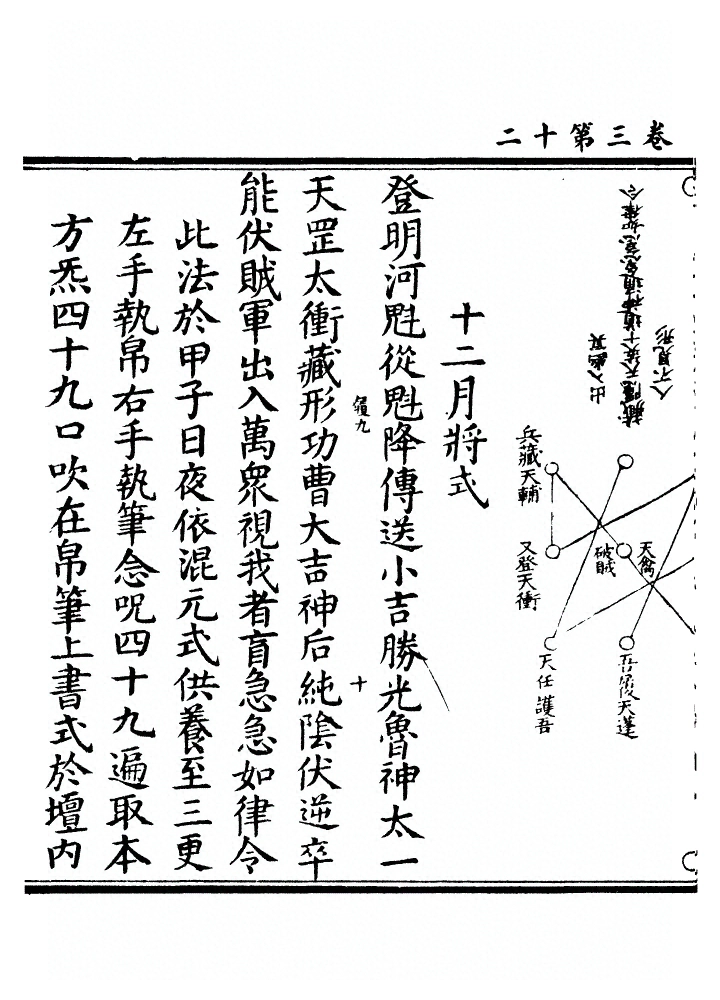 卷三第十二
人不見形
藏隱天英十道神通急急如律令
出入幽冥
天禽
破賊
天蓬
兵藏天輔
又登天衝
天任護吾
十二月將式
登明河魁從魁降傳送小吉勝光魯神太一
履九
十
天罡太衝藏形功曹大吉神后純陰伏逆卒
能伏賊軍出入萬衆視我者盲急急如律令
此法於甲子日夜依混元式供養至三更
左手執帛右手執筆念呪四十九遍取本
方炁四十九口吹在帛筆上書式於壇内